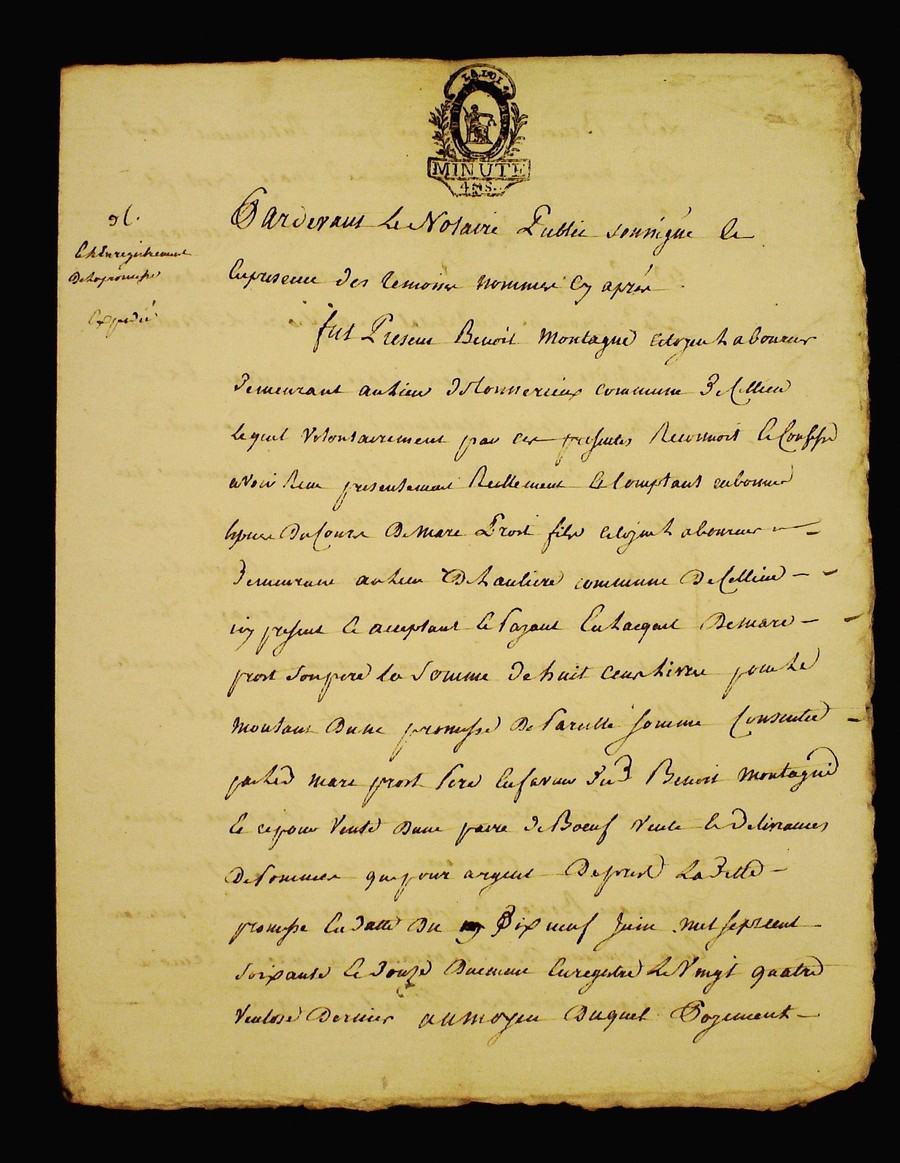 LA LOI
MINUTE
4 D. S.
Pardevant Le Notaire Public soussigné Et
En presence des temoins nommes Cy après
L'Enregistrement
De la promesse
Expedié
fut Present Benoit Montagne citoyen Laboureur
Demeurant au Lieu commune De Cellieu
Lequel volontairement par ces presentes Reconnoit Et Confesse
avoir Recu presentement Reellement Et Comptant en bonnes
Especes Du Cours De Marc Prost fils citoyen Laboureur
Demeurant au Lieu De commune De Cellieu
icy present Et acceptant Et Payant En Lacquit De Marc
prost son pere la Somme de huit cent Livres pour Le
montant Dune promesse De Pareille somme Consentie
par Led marc prost Pere En faveur Dud Benoit Montagne
Et ce pour Vente Dune paire de Boeuf Vente Et Delivrances
De sommes que pour argent De preté La Ditte
promesse En datte Du Dix neuf Juin mil sept cent
soixante Et Douze Duement Enregistré Le Vingt quatre
Ventose Dernier au moyen Duquel Payement